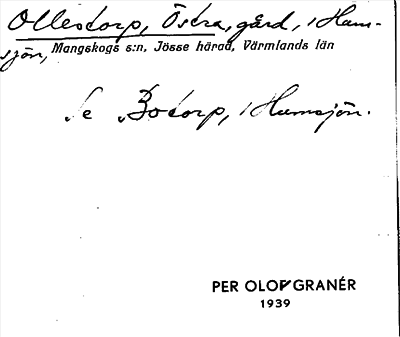 Ollestorp, Östra, gård, i Hum-
sjön, Mangskogs s:n, Jösse härad, Värmlands län
Se Botorp, i Humsjön.
PER OLOF GRANÉR
1939